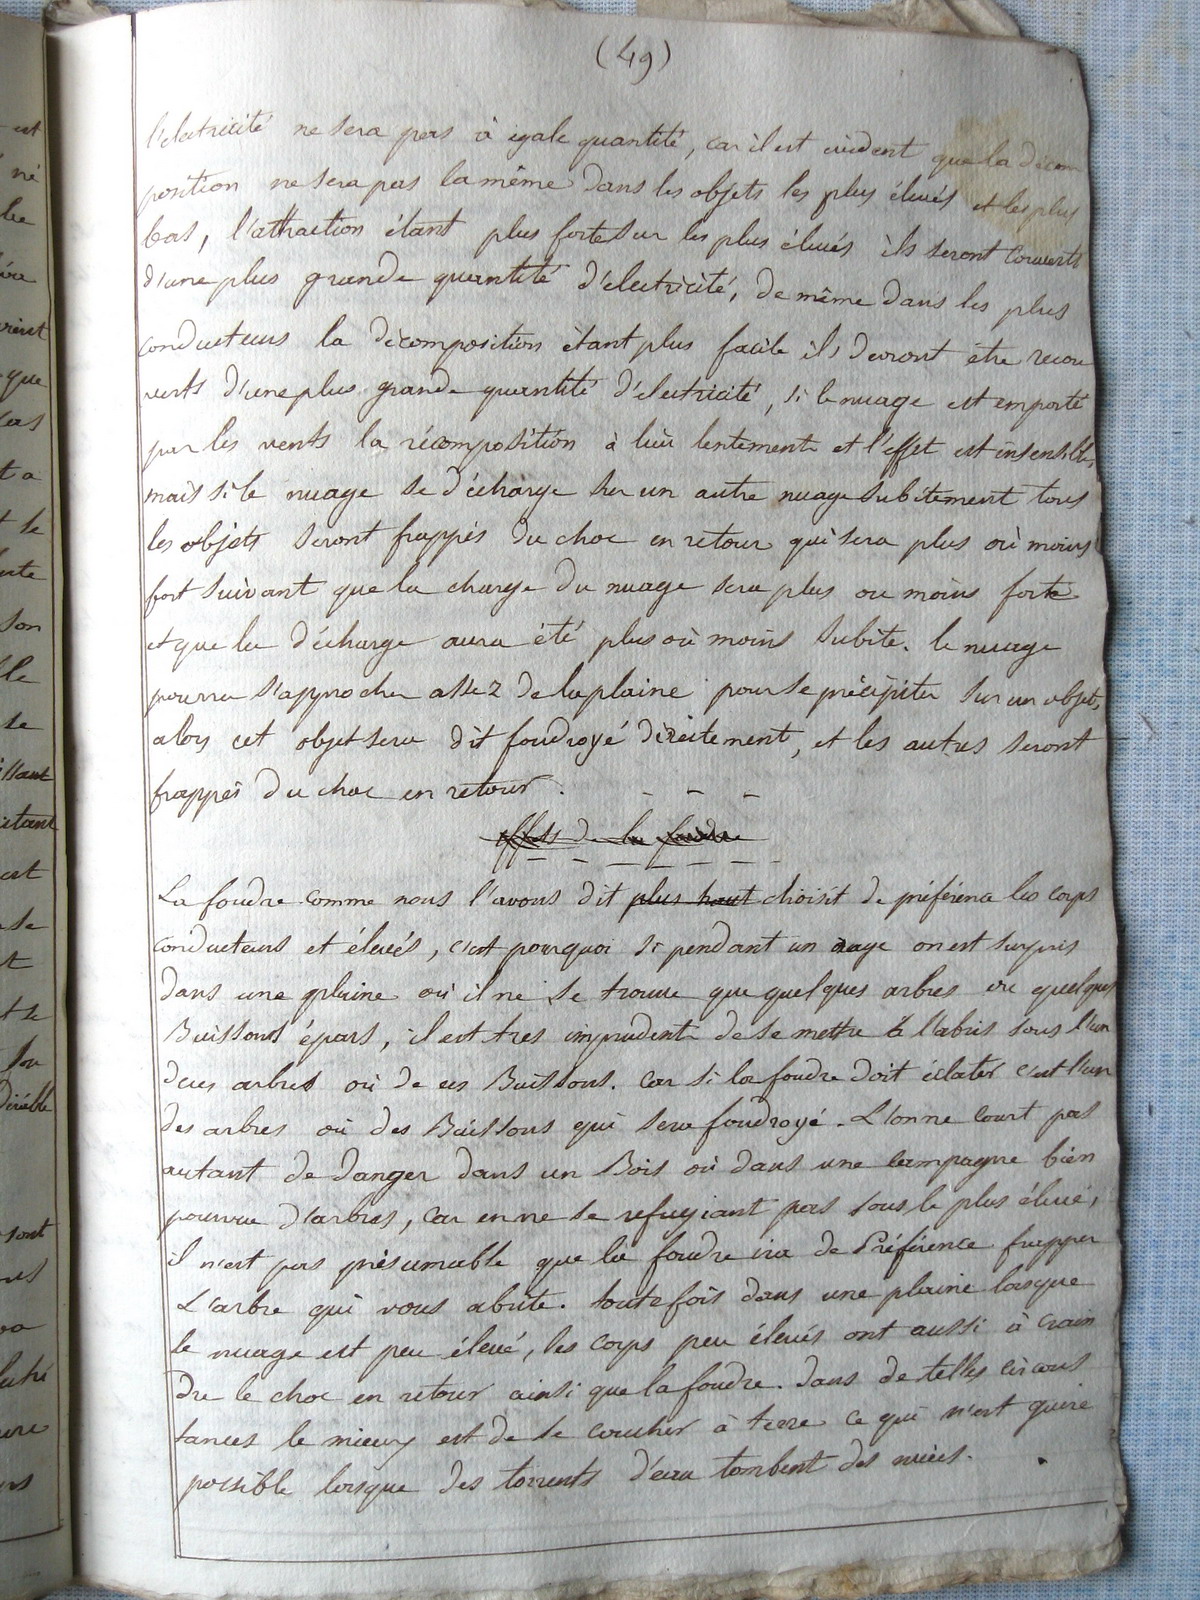 (49)
l'electricité ne sera pas à egale quantité, car il est evident que la decom
position ne sera pas la même dans les objets les plus élevés et les plus
bas, l'attraction étant plus forte sur les plus élevés ils seront couverts
d'une plus grande quantité d'electricité, de même dans les plus
conducteurs la décomposition étant plus facile ils devront être recou
verts d'une plus grande quantité d'électricité, si le nuage est emporté
par les vents la récomposition à lieu lentement et l'effet est insensible,
mais si le nuage se décharge sur un autre nuage subitement tous
les objets seront frappés du choc en retour qui sera plus ou moins
fort suivant que la charge du nuage sera plus ou moins forte
et que la décharge aura été plus où moins subite. le nuage
pourra s'approcher assez de la plaine pour se précipiter sur un objet,
alors cet objet sera dit foudroyé directement, et les autres seront
frappés du choc en retour.
effets de la foudre
La foudre comme nous l'avons dit plus haut choisit de préférence les corps
conducteurs et élevés, c'est pourquoi si pendant un orage on est surpris
dans une plaine où il ne se trouve que quelques arbres ou quelques
Buissons épars, il est tres imprudent de se mettre à l'abris sous l'un
de ces arbres où de ces Buissons. car si la foudre doit éclater c'est l'un
des arbres où des Buissons qui sera foudroyé. L'on ne court pas
autant de danger dans un Bois où dans une campagne bien
pourvue d'arbres, car en ne se refugiant pas sous le plus élevé,
il n'est pas présumable que la foudre ira de Préférence frapper
L'arbre qui vous abrite. toutefois dans une plaine lorsque
le nuage est peu élevé, les corps peu élevés ont aussi à crain
dre le choc en retour ainsi que la foudre. dans de telles circons
tances le mieux est de se coucher à terre ce qui n'est guere
possible lorsque des torrents d'eau tombent des nuées.